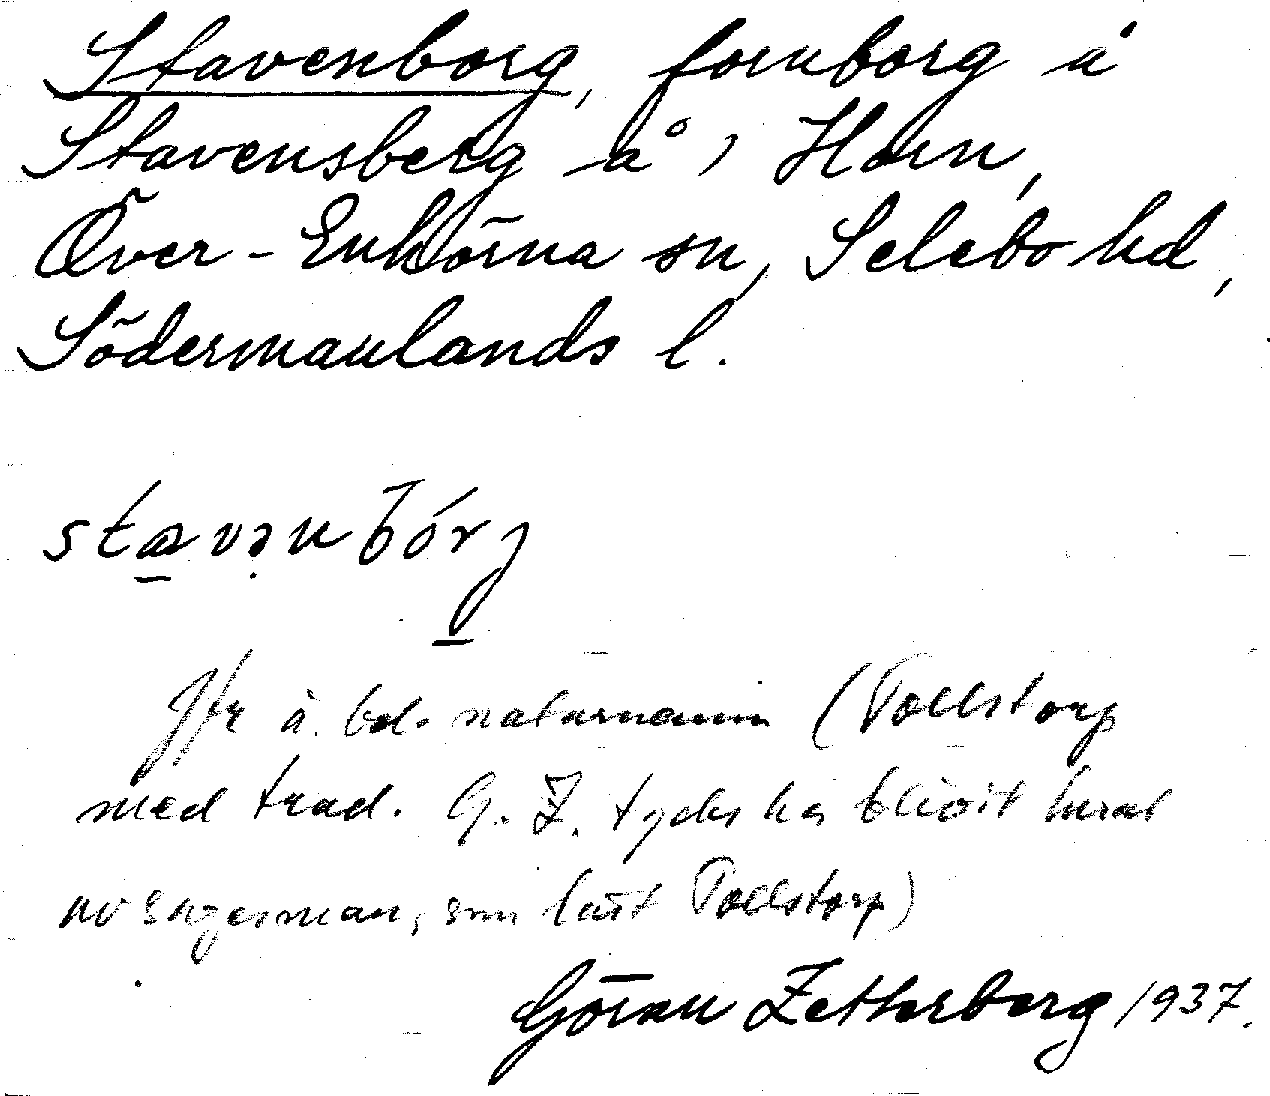 Stavenborg, fornborg å
Stavensberg å, Horn,
Över-Enhörna sn, Selebo hd,
Södermanlands l.
stavənbórj
Jfr å. bol. naturnamn (Tollstorp
med trad. G. Z. tycks ha blivit lurad
av sagesman, som läst Tollstorp)
Göran Zetterberg 1937.